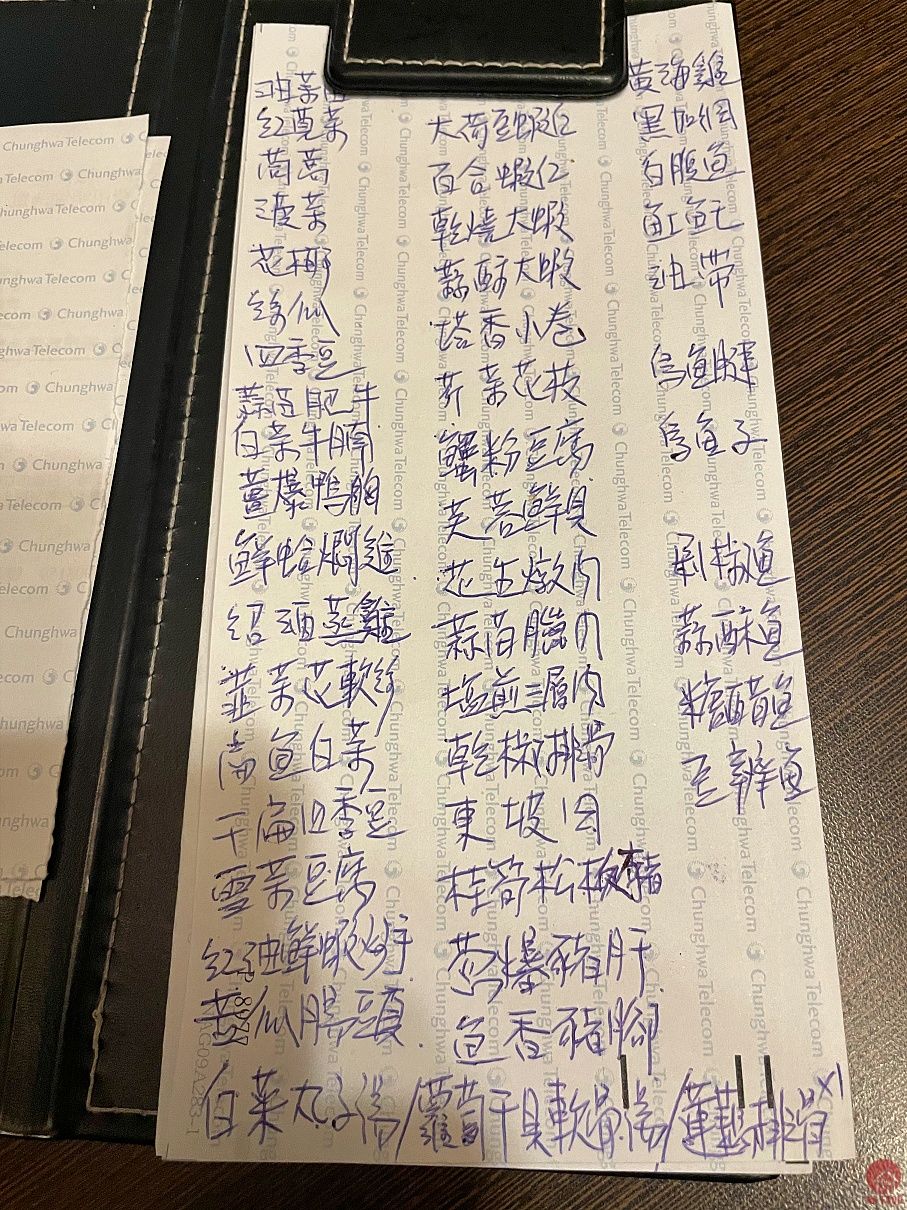 油菜
紅莧菜
茼蒿
菠菜
花椰
絲瓜
四季豆
蒜苗肥牛
白菜牛腩
薑爆鴨胸
鮮蛤燜雞
紹酒蒸雞
韭菜花軟絲
扁魚白菜
干扁四季豆
雪菜豆腐
紅油鮮蝦炒手
苦瓜腸頭
大荷豆蝦仁
百合蝦仁
乾燒大蝦
蒜酥大蝦
塔香小卷
芹菜花枝
蟹粉豆腐
芙蓉鮮貝
花生燉肉
蒜苗臘肉
塩煎三層肉
乾椒排骨
東坡肉
桂筍松板豬
蔥爆豬肝
魚香豬腳
黃海雞
黑加網
白腹魚
魟魠
油帶
烏魚腱
烏魚子
剁椒魚
蒜酥魚
糖醋魚
豆瓣魚
白菜丸子湯/蘿蔔干貝軟骨湯/蓮藕排骨x1
Chunghwa Telecom